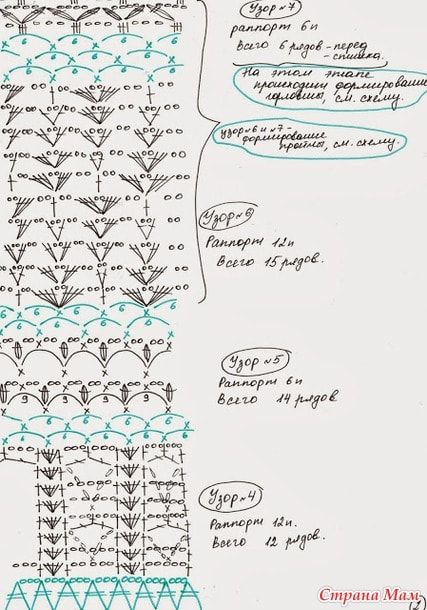 Узор №7
раппорт 6п
Всего 6 рядов - перед
- спинка.
На этом этапе
происходит формирование
горловины, см. схему.
Узор №6 и №7 -
формирование
проймы, см. схему.
Узор №6
Раппорт 12п
Всего 15 рядов.
Узор №5
Раппорт 6п
Всего 14 рядов
Узор №4
Раппорт 12п.
Всего 12 рядов.
Страна Мам